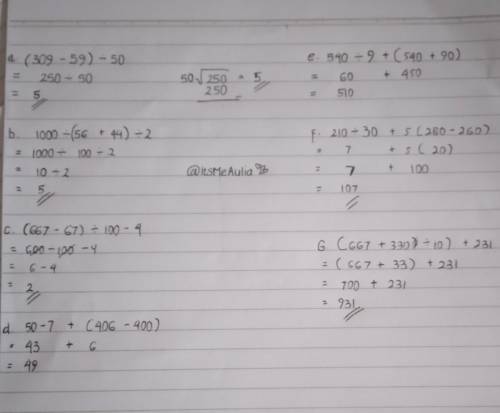 a. (309 - 59) ÷ 50
= 250 ÷ 50
= 5
50√250 = 5
250
b. 1000 ÷ (56 + 44) ÷ 2
= 1000 ÷ 100 ÷ 2
= 10 ÷ 2
= 5
@itsMeAulia
c. (667 - 67) ÷ 100 - 4
= 600 ÷ 100 - 4
= 6 - 4
= 2
d. 50 - 7 + (406 - 400)
= 43 + 6
= 49
e. 540 ÷ 9 + (540 + 90)
= 60 + 450
= 510
f. 210 ÷ 30 + 5 (280 - 260)
= 7 + 5 (20)
= 7 + 100
= 107
G (667 + 330) ÷ 10) + 231
= (667 + 33) + 231
= 700 + 231
= 931